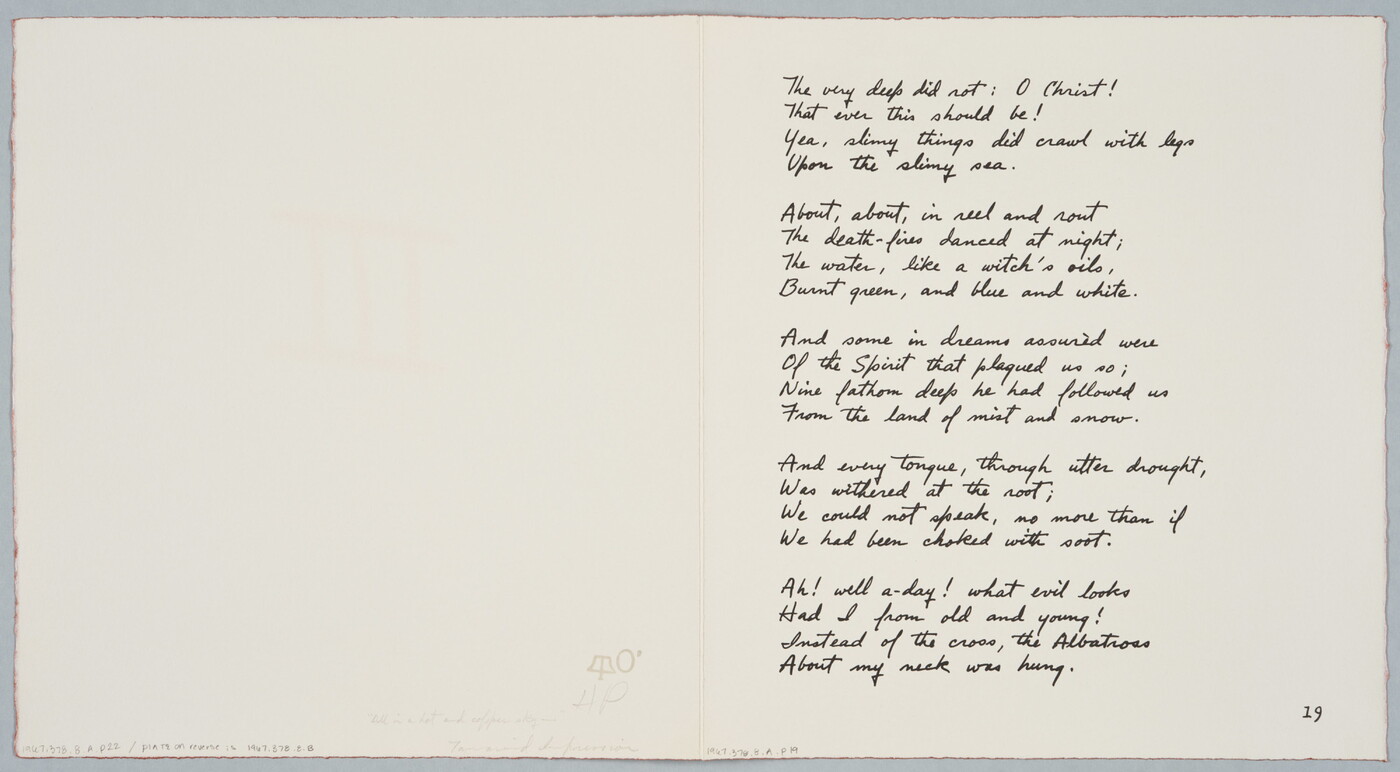 The very deep did rot: O Christ!
That ever this should be!
Yea, slimy things did crawl with legs
Upon the slimy sea.
About, about, in reel and rout
The death-fires danced at night;
The water, like a witch's oils,
Burnt green, and blue and white.
And some in dreams assurèd were
Of the Spirit that plagued us so;
Nine fathom deep he had followed us
From the land of mist and snow.
And every tongue, through utter drought,
Was withered at the root;
We could not speak, no more than if
We had been choked with soot.
Ah! well a-day! what evil looks
Had I from old and young!
Instead of the cross, the Albatross
About my neck was hung.
19
HP
"All in a hot and copper sky—"
Tamarind Impression
1967.378.8.A p22 / plate on reverse is 1967.378.8.B
1967.378.8.A.p19